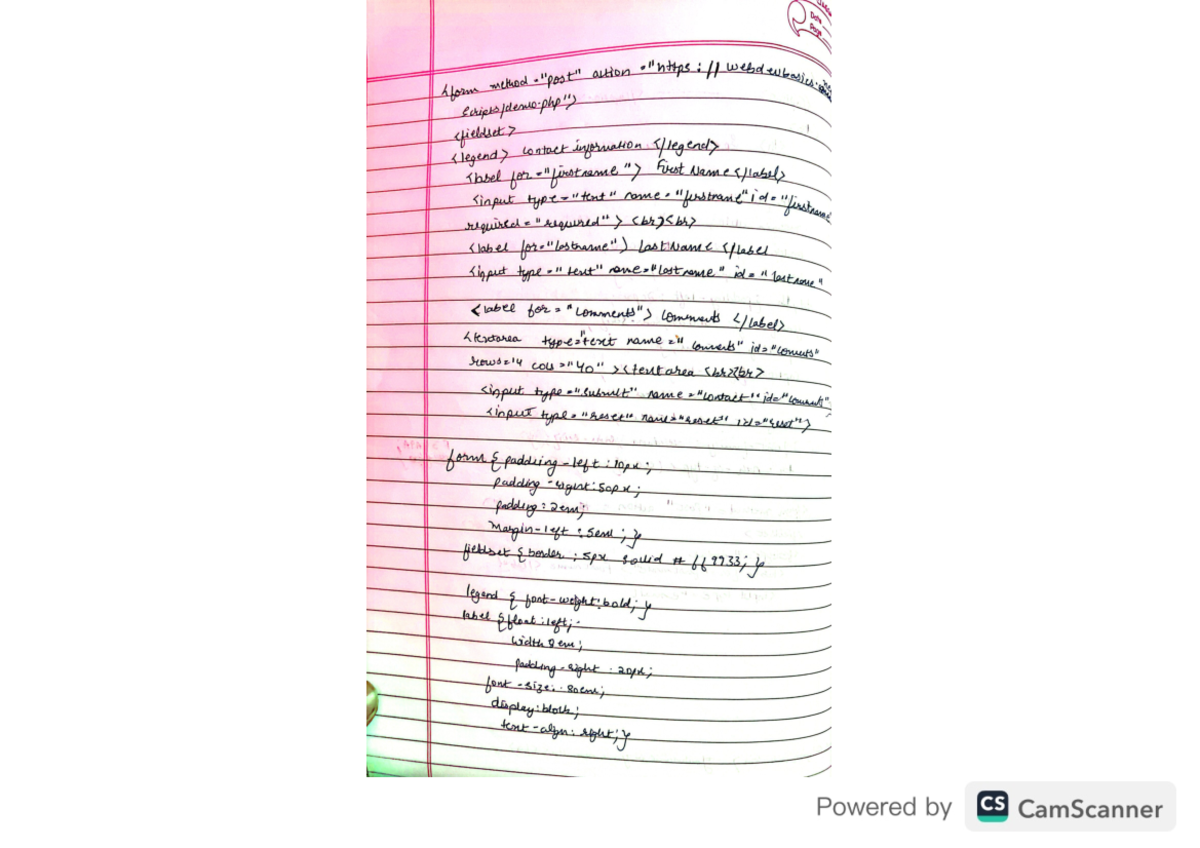 Date
Page
<form method="post" action ="https://webdevbasics.
scripts/demo.php">
<fieldset>
<legend> contact information </legend>
<label for="firstname"> First Name </label>
<input type="text" name="firstname" id="firstname
required="required"> <br><br>
<label for="lastname"> Last Name </label
<input type="text" name="lastname" id="lastname"
<label for="comments"> comments </label>
<textarea type="text name="
rows="4 cols="40"><textarea <br><br>
<input type="submit" name="contact" id=
<input type="reset" name="reset" id="reset">
form { padding-left:10px;
padding-right:50px;
padding:2em;
margin-left:5em;}
fieldset {border:5px solid #ff9933;}
legend { font-weight:bold;}
label {float:left;
width 8em;
padding-right:20px;
font-size:.80em;
display:block;
text-align:right;}
Powered by CS CamScanner